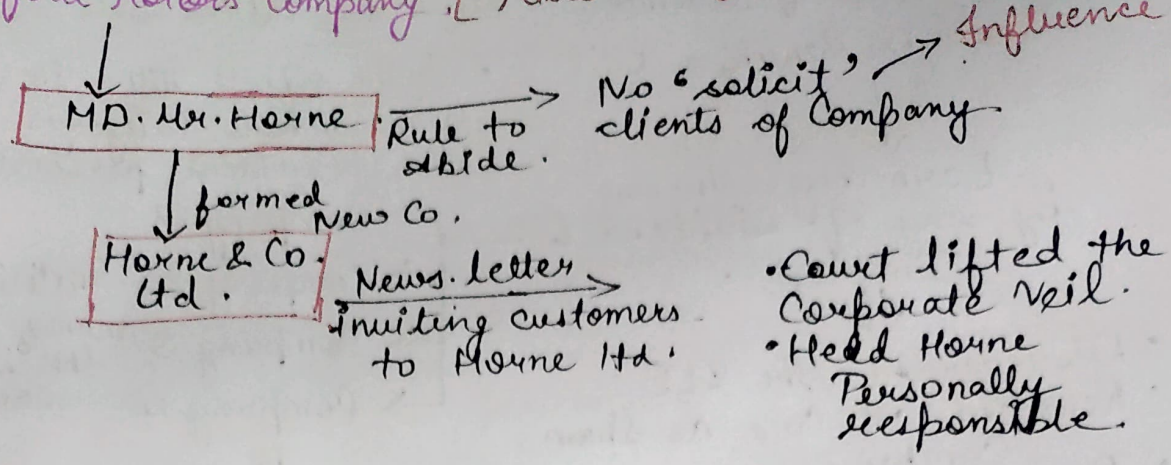 Motors Company. [
Influence
MD. Mr. Horne
Rule to
abide.
No "solicit"
clients of Company
formed
New Co.
Horne & Co.
Ltd.
News. letter
inviting customers
to Horne ltd.
• Court lifted the
Corporate Veil.
• Held Horne
Personally
responsible.